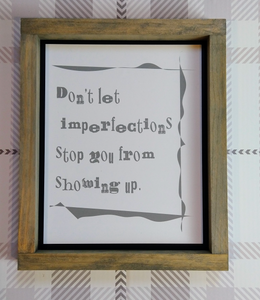 Don't let
imperfections
Stop you from
Showing up.